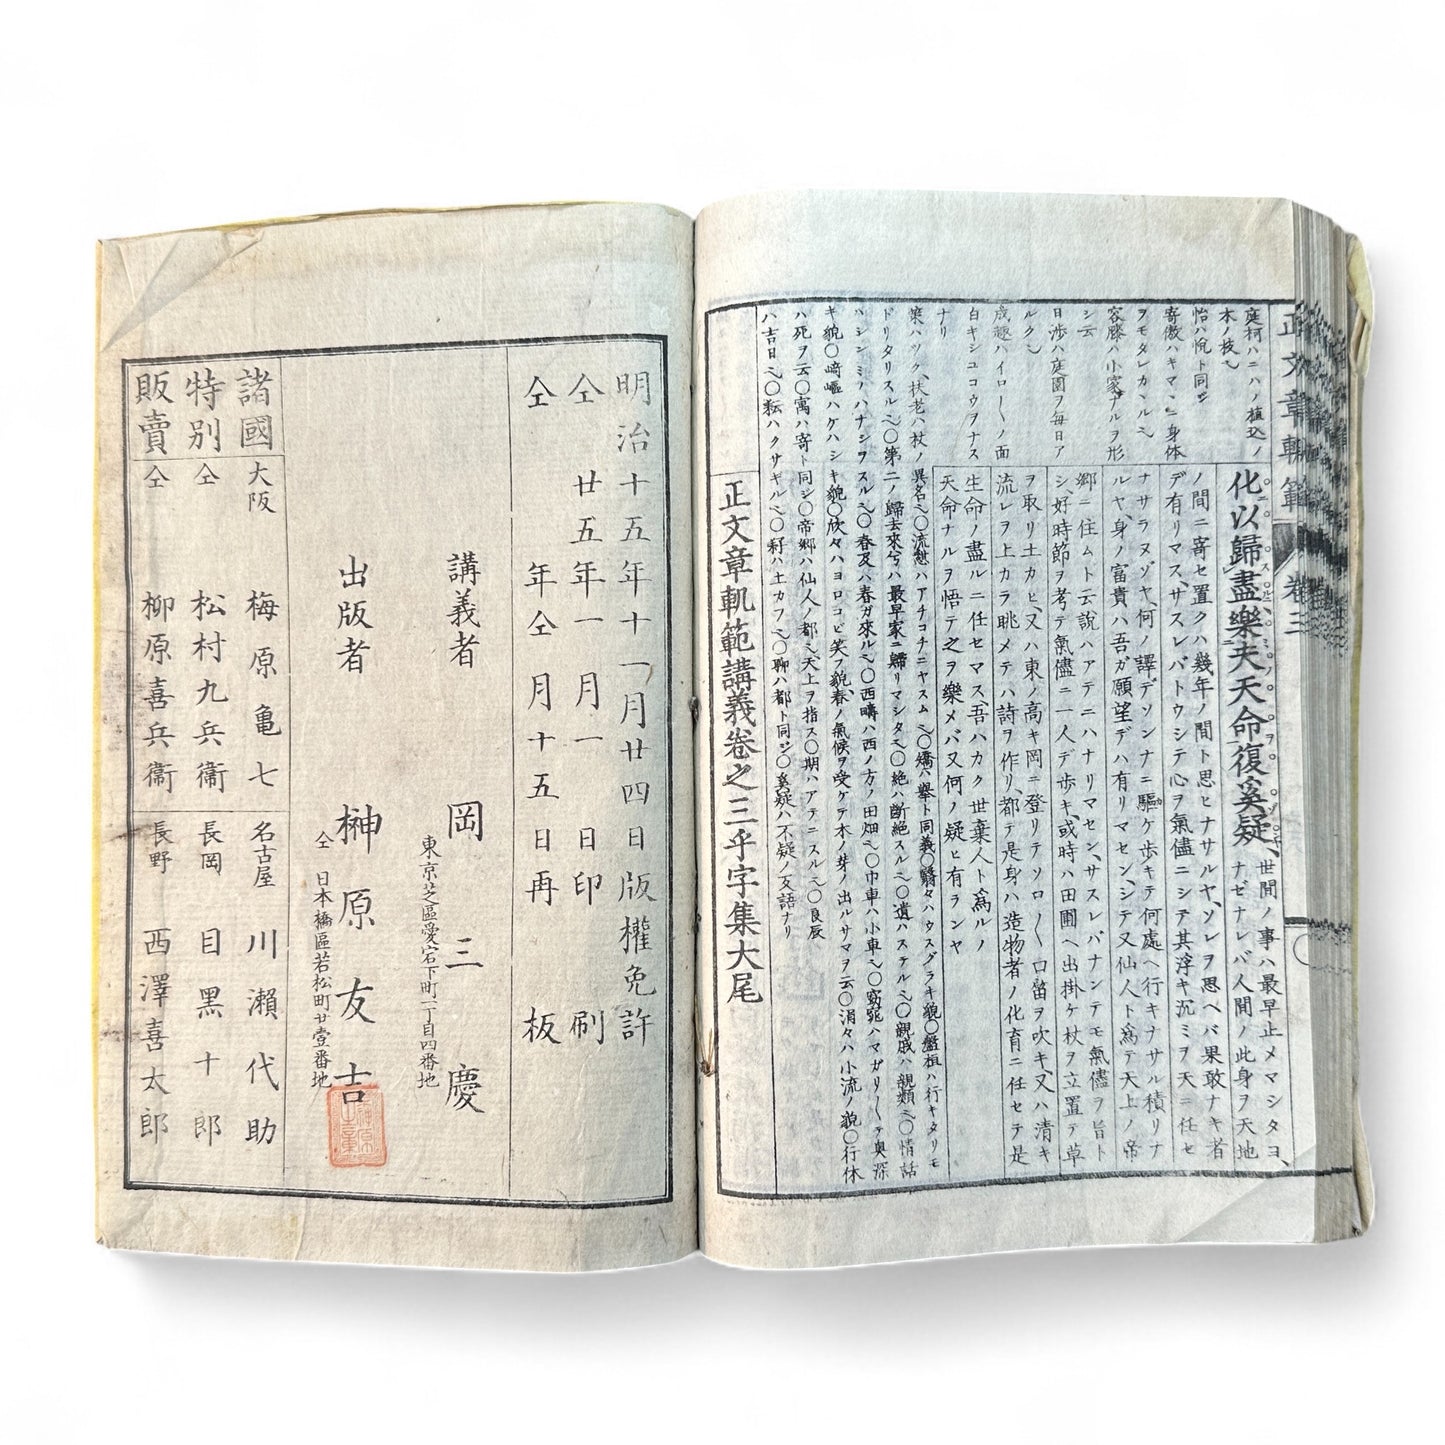 庭柯ハニハノ植込ノ
木ノ枝也
怡ハ悦ト同ジ
寄傲ハキマヽニ身体
ヲモタレカヽル也
容膝ハ小家ナルヲ形
シ云
日渉ハ庭園ヲ毎日ア
ルク也
成趣ハイロ〳〵ノ面
白キシユコウヲナス
ナリ
化以歸盡樂夫天命復奚疑、世間ノ事ハ最早止メマシタヨ、
ナゼナレバ人間ノ此身ヲ天地
ノ間ニ寄セ置クハ幾年ノ間ト思ヒナサルヤ、ソレヲ思ヘバ果敢ナキ者
デ有リマス、サスレバトウシテ心ヲ氣儘ニシテ其浮キ沉ミヲ天ニ任セ
ナサラヌゾヤ、何ノ譯デソンナニ驅ケ歩キテ何處ヘ行キナサル積リナ
ルヤ、身ノ富貴ハ吾ガ願望デハ有リマセン、シテ又仙人ト爲テ天上ノ帝
郷ニ住ムト云説ハアテニハナリマセン、サスレバナンテモ氣儘ヲ旨ト
シ、好時節ヲ考テ氣儘ニ一人デ歩キ、或時ハ田圃ヘ出掛ケ杖ヲ立置テ草
ヲ取リ土カヒ、又ハ東ノ高キ岡ニ登リテソロ〳〵口笛ヲ吹キ、又ハ清キ
流レヲ上カラ眺メテハ詩ヲ作リ、都テ是身ハ造物者ノ化育ニ任セテ是
生命ノ盡ルニ任セマス、吾ハカク世棄人ト爲ルノ
天命ナルヲ悟テ之ヲ樂メバ又何ノ疑ヒ有ランヤ
策ハツク、扶老ハ杖ノ異名也〇流憩ハアチコチニヤスム也〇矯ハ擧ト同義〇翳々ハウスグラキ貌〇盤桓ハ行キタリモ
ドリタリスル也〇第二ノ歸去來兮ハ最早家ニ歸リマシタ也〇絶ハ斷絶スル也〇遺ハステル也〇親戚ハ親類也〇情話
ハシンミノハナシヲスル也〇春及ハ春ガ來ル也〇西疇ハ西ノ方ノ田畑也〇巾車ハ小車也〇窈窕ハマガリ〳〵テ奥深
キ貌〇崎嶇ハケハシキ貌〇欣々ハヨロコビ笑フ貌、春ノ氣候ヲ受ケテ木ノ芽ノ出ルサマヲ云〇涓々ハ小流ノ貌〇行休
ハ死ヲ云〇寓ハ寄ト同ジ〇帝郷ハ仙人ノ都也、天上ヲ指ス〇期ハアテニスル也〇良辰
ハ吉日也〇耘ハクサギル也〇耔ハ土カフ也〇聊ハ都ト同ジ〇奚疑ハ不疑ノ反語ナリ
正文章軌範講義卷之三乎字集大尾
正文章軌範 卷三
明治十五年十一月廿四日版權免許
仝 廿五年一月一日印刷
仝 年仝月十五日再板
講義者 岡三慶
東京芝區愛宕下町一丁目四番地
出版者 榊原友吉
仝 日本橋區若松町廿壹番地
諸國 大阪 梅原亀七 名古屋 川瀨代助
特別 仝 松村九兵衛 長岡 目黒十郎
販賣 仝 柳原喜兵衛 長野 西澤喜太郎